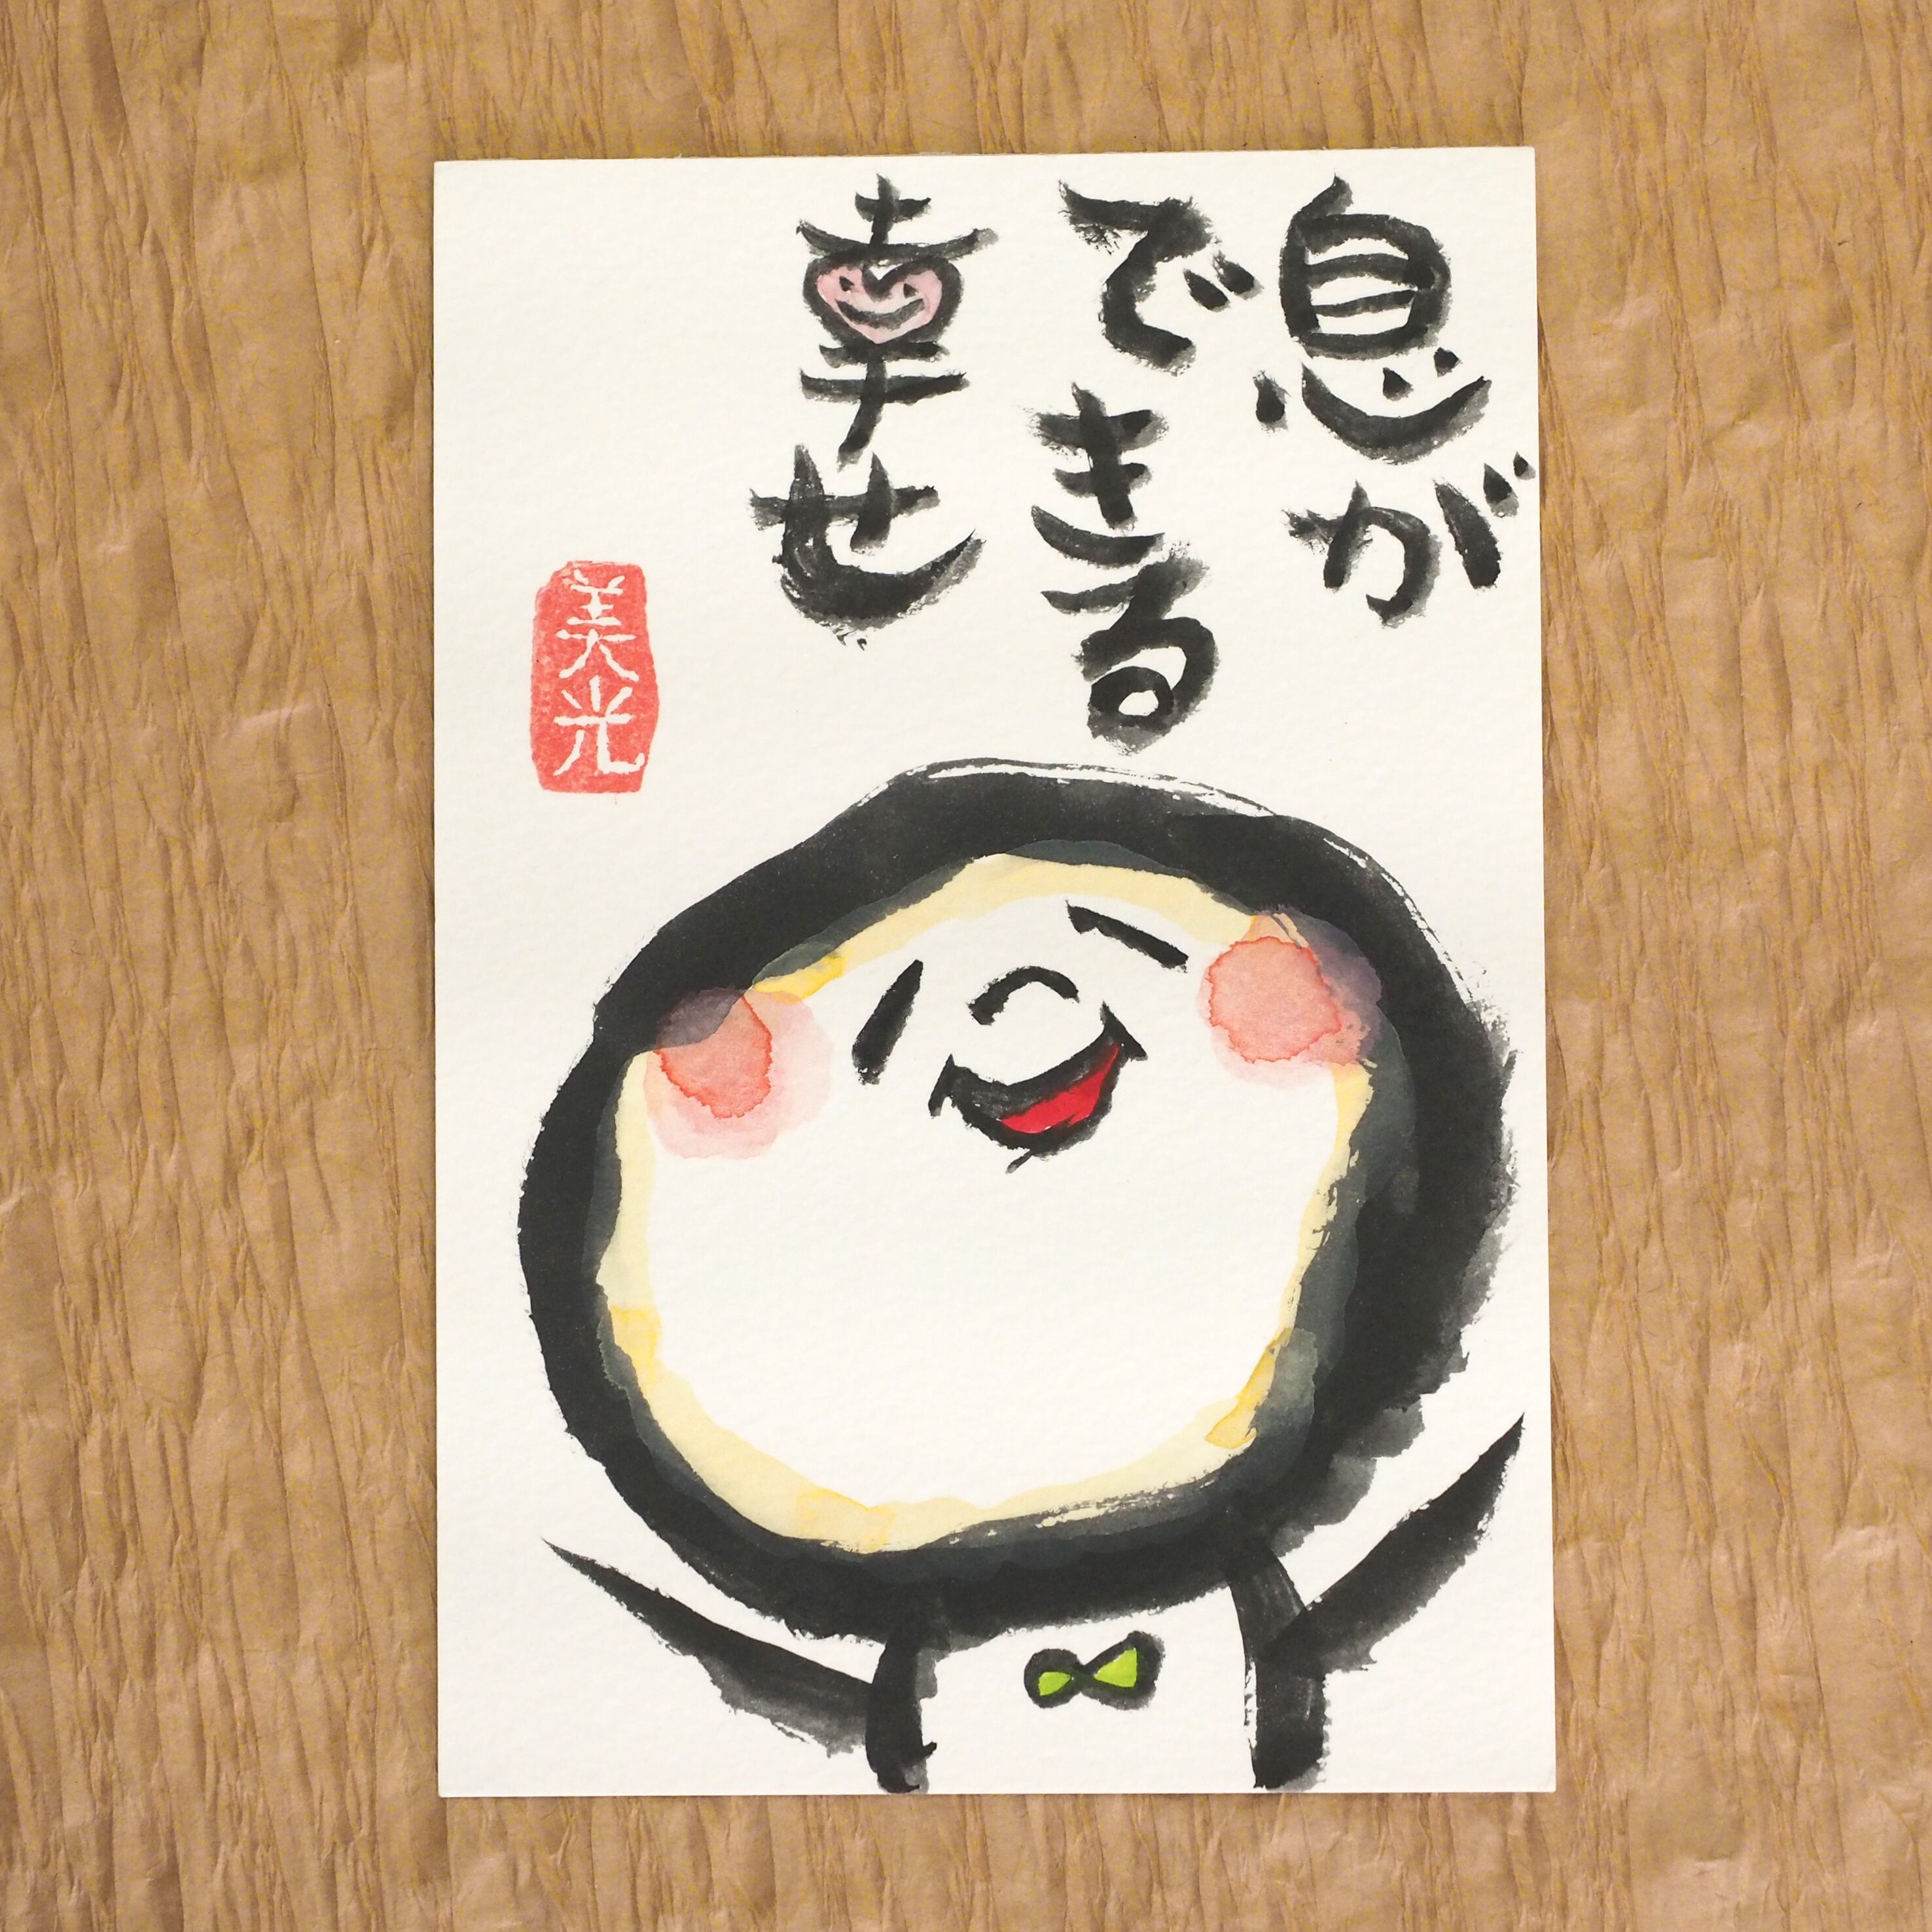 息が
できる
幸せ
美光